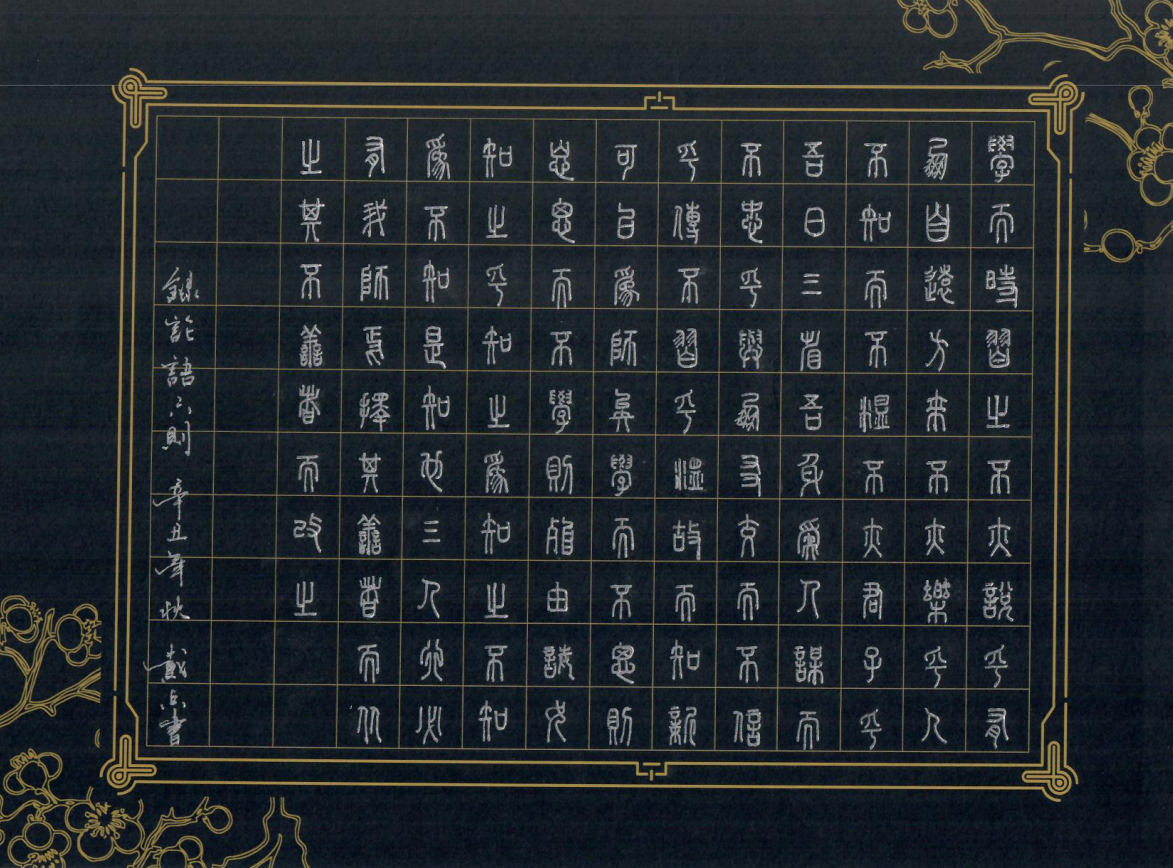 學而時習之不亦說乎有
朋自遠方來不亦樂乎人
不知而不愠不亦君子乎
吾日三省吾身爲人謀而
不忠乎與朋友交而不信
乎傳不習乎溫故而知新
可以爲師矣學而不思則
罔思而不學則殆由誨女
知之乎知之爲知之不知
爲不知是知也三人行必
有我師焉擇其善者而从
之其不善者而改之
錄論語六則 辛丑年秋 戴書